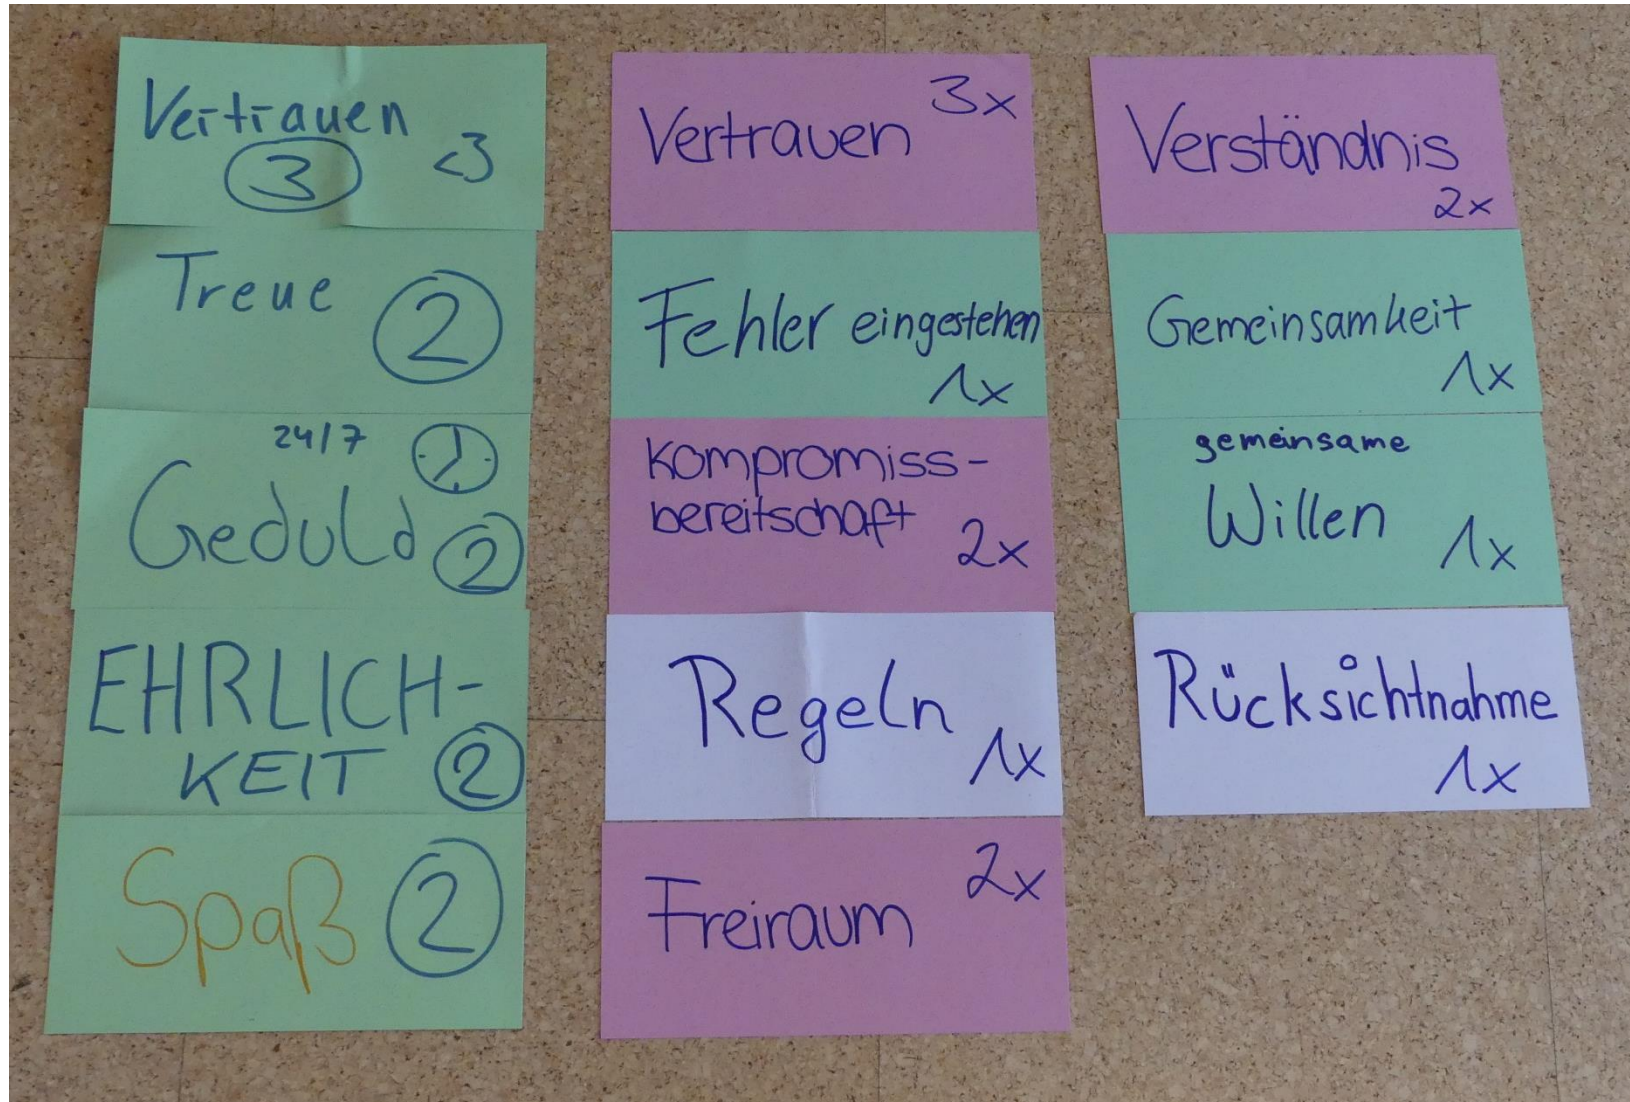 Vertrauen
3 <3
Treue 2
24/7
Geduld 2
EHRLICH-
KEIT 2
Spaß 2
Vertrauen 3x
Fehler eingestehen
1x
Kompromiss-
bereitschaft 2x
Regeln 1x
Freiraum 2x
Verständnis
2x
Gemeinsamkeit
1x
gemeinsame
Willen 1x
Rücksichtnahme
1x